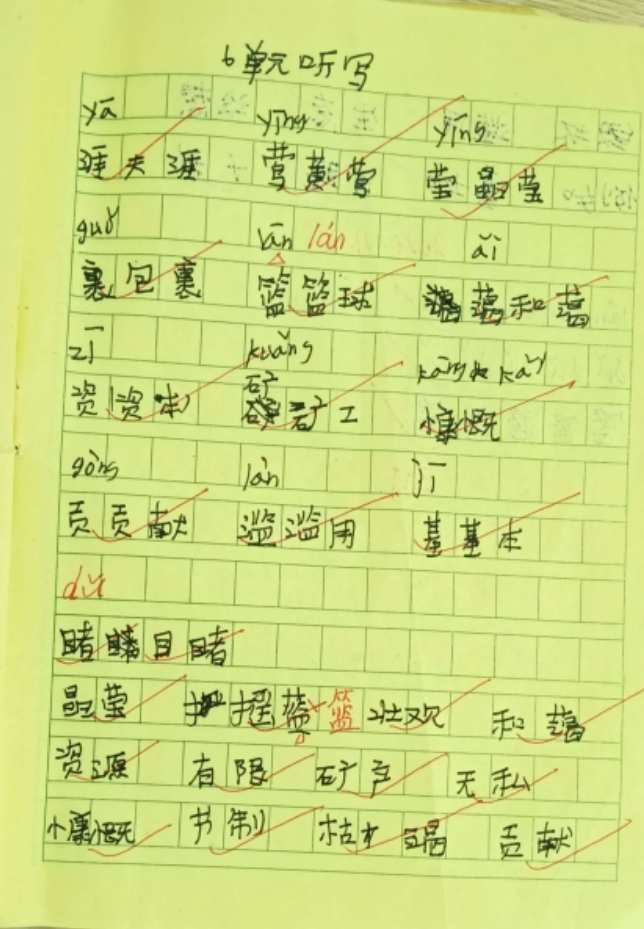 6单元听写
yā yīng yīng
涯天涯 莺黄莺 莹晶莹
guǒ lán lán ǎi
裹包裹 篮篮球 蔼蔼和蔼
zī kuàng kāng kǎi
资资本 矿矿工 慷慨
gòng làn jī
贡贡献 滥滥用 基基本
dǔ
睹目睹
晶莹 摇篮 壮观 和蔼
资源 有限 矿产 无私
慷慨 节制 枯竭 贡献